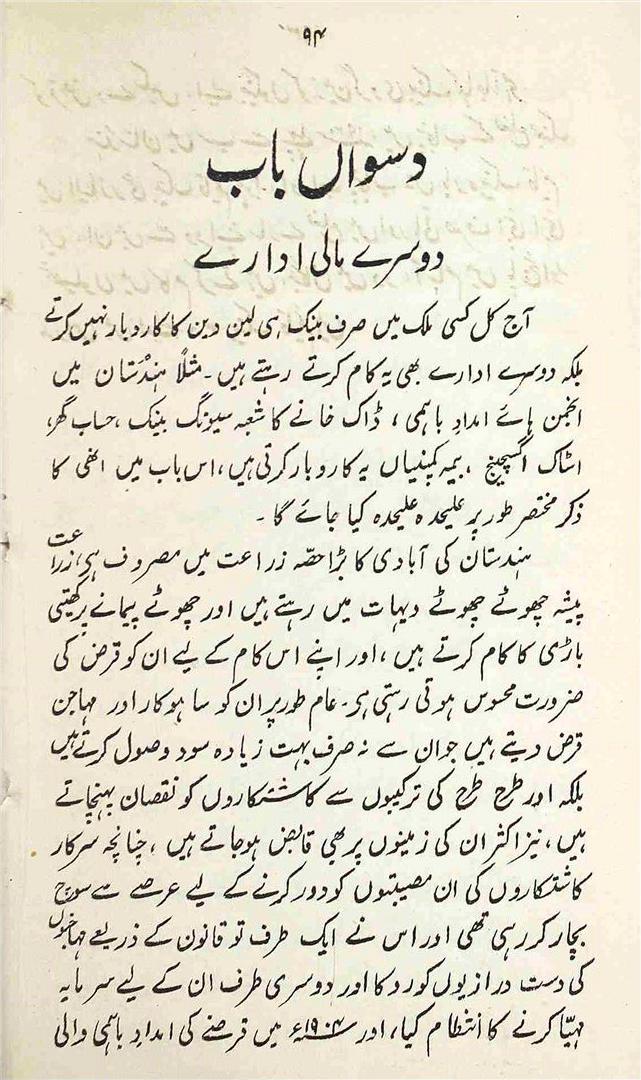 ۹۴
دسواں باب
دوسرے مالی ادارے
آج کل کسی ملک میں صرف بینک ہی لین دین کا کاروبار نہیں کرتے
بلکہ دوسرے ادارے بھی یہ کام کرتے رہتے ہیں۔ مثلاً ہندستان میں
انجمن ہائے امداد باہمی، ڈاک خانے کا شعبہ سیونگ بینک، حساب گھر،
اسٹاک اکسچینج، بیمہ کمپنیاں یہ کاروبار کرتی ہیں، اس باب میں انھی کا
ذکر مختصر طور پر علیحدہ علیحدہ کیا جائے گا۔
ہندستان کی آبادی کا بڑا حصّہ زراعت میں مصروف ہی، زراعت
پیشہ چھوٹے چھوٹے دیہات میں رہتے ہیں اور چھوٹے پیمانے پر کھیتی
باڑی کا کام کرتے ہیں، اور اپنے اس کام کے لیے ان کو قرض کی
ضرورت محسوس ہوتی رہتی ہی۔ عام طور پر ان کو ساہوکار اور مہاجن
قرض دیتے ہیں جو ان سے نہ صرف بہت زیادہ سود وصول کرتے ہیں
بلکہ اور طرح طرح کی ترکیبوں سے کاشتکاروں کو نقصان پہنچاتے
ہیں، نیز اکثر ان کی زمینوں پر بھی قابض ہوجاتے ہیں، چنانچہ سرکار
کاشتکاروں کی ان مصیبتوں کو دور کرنے کے لیے عرصے سے سوچ
بچار کر رہی تھی اور اس نے ایک طرف تو قانون کے ذریعے مہاجنوں
کی دست درازیوں کو روکا اور دوسری طرف ان کے لیے سرمایہ
مہیّا کرنے کا انتظام کیا، اور ۱۹۰۴ء میں قرضے کی امداد باہمی والی